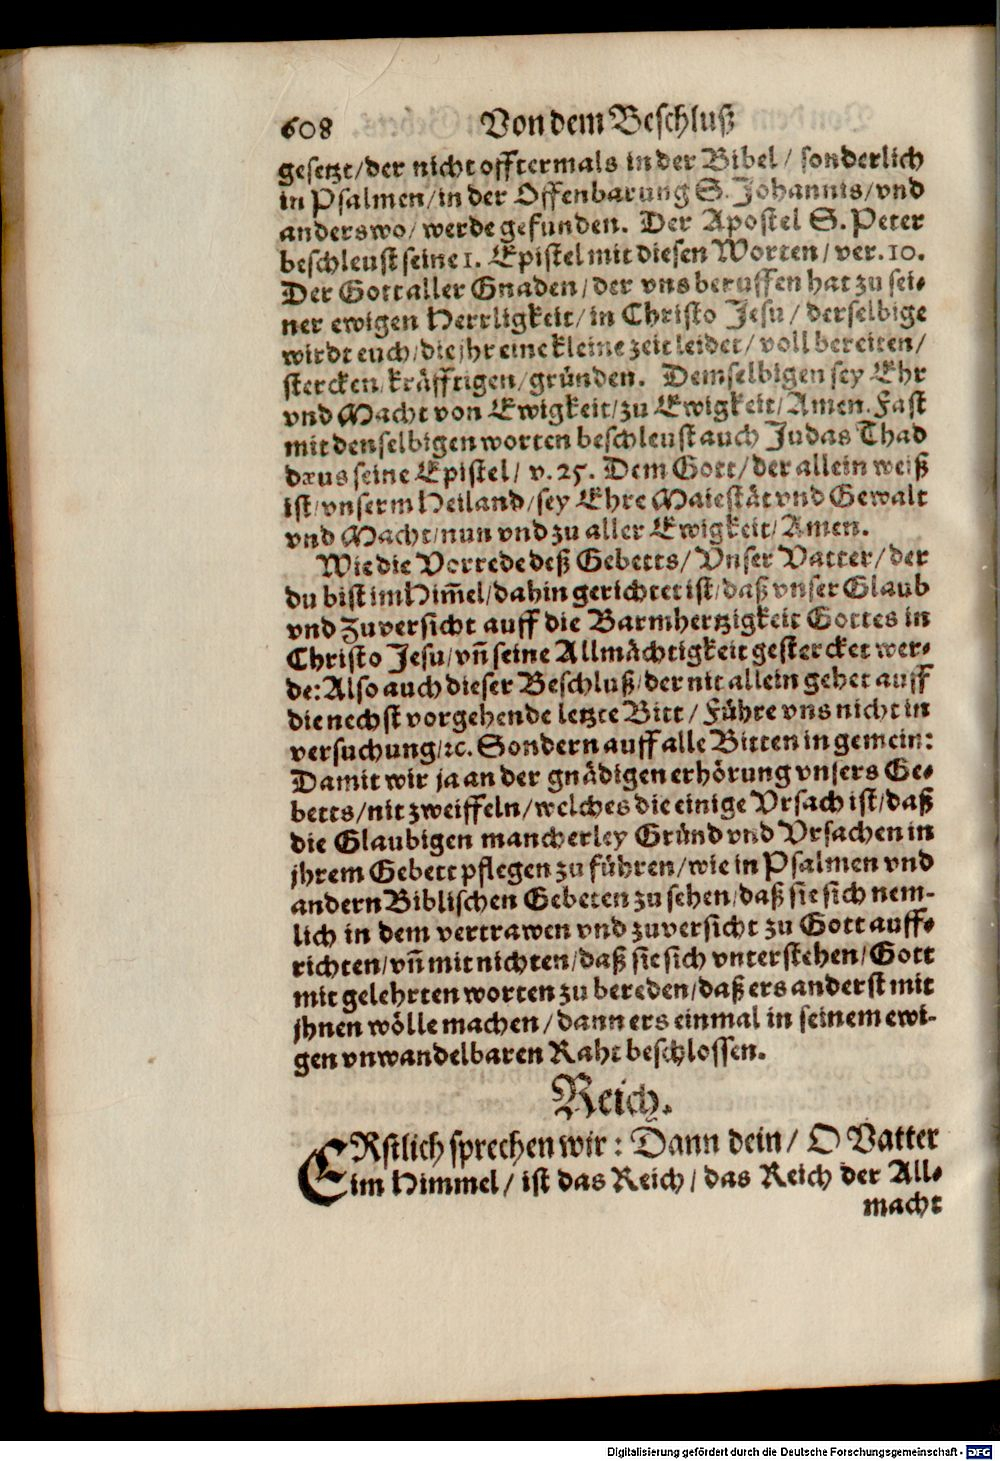 608 Von dem Beschluß
gesetzt/der nicht offtermals in der Bibel/ sonderlich
in Psalmen/in der Offenbarung S. Johannis/vnd
anderswo/werde gefunden. Der Apostel S. Peter
beschleust seine 1. Epistel mit diesen Worten/ ver. 10.
Der Gott aller Gnaden/der vns beruffen hat zu sei-
ner ewigen Herrligkeit/in Christo Jesu/ derselbige
wirdt euch/die jhr eine kleine zeit leidet/ vollbereiten/
stercken/kräfftigen/gründen. Demselbigen sey Ehr
vnd Macht von Ewigkeit/zu Ewigkeit/Amen. Fast
mit denselbigen worten beschleust auch Judas Thad
dæus seine Epistel/ v. 25. Dem Gott/der allein weiß
ist/vnserm Heiland/sey Ehre Maiestät vnd Gewalt
vnd Macht/nun vnd zu aller Ewigkeit/Amen.
Wie die Vorrede deß Gebetts/Vnser Vatter/der
du bist im Him̃el/dahin gerichtet ist/daß vnser Glaub
vnd Zuversicht auff die Barmhertzigkeit Gottes in
Christo Jesu/vñ seine Allmächtigkeit gestercket wer-
de: Also auch dieser Beschluß/der nit allein gehet auff
die nechst vorgehende letzte Bitt/ Führe vns nicht in
versuchung/ꝛc. Sondern auff alle Bitten in gemein:
Damit wir ja an der gnädigen erhörung vnsers Ge-
betts/nit zweiffeln/welches die einige Vrsach ist/daß
die Glaubigen mancherley Gründ vnd Vrsachen in
jhrem Gebett pflegen zu führen/wie in Psalmen vnd
andern Biblischen Gebeten zu sehen/daß sie sich nem-
lich in dem vertrawen vnd zuversicht zu Gott auff-
richten/vñ mit nichten/daß sie sich vnterstehen/Gott
mit gelehrten worten zu bereden/daß ers anderst mit
jhnen wölle machen/dann ers einmal in seinem ewi-
gen vnwandelbaren Raht beschlossen.
Reich.
ERstlich sprechen wir: Dann dein/ O Vatter
im Himmel/ ist das Reich/ das Reich der All-
macht
Digitalisierung gefördert durch die Deutsche Forschungsgemeinschaft - DFG